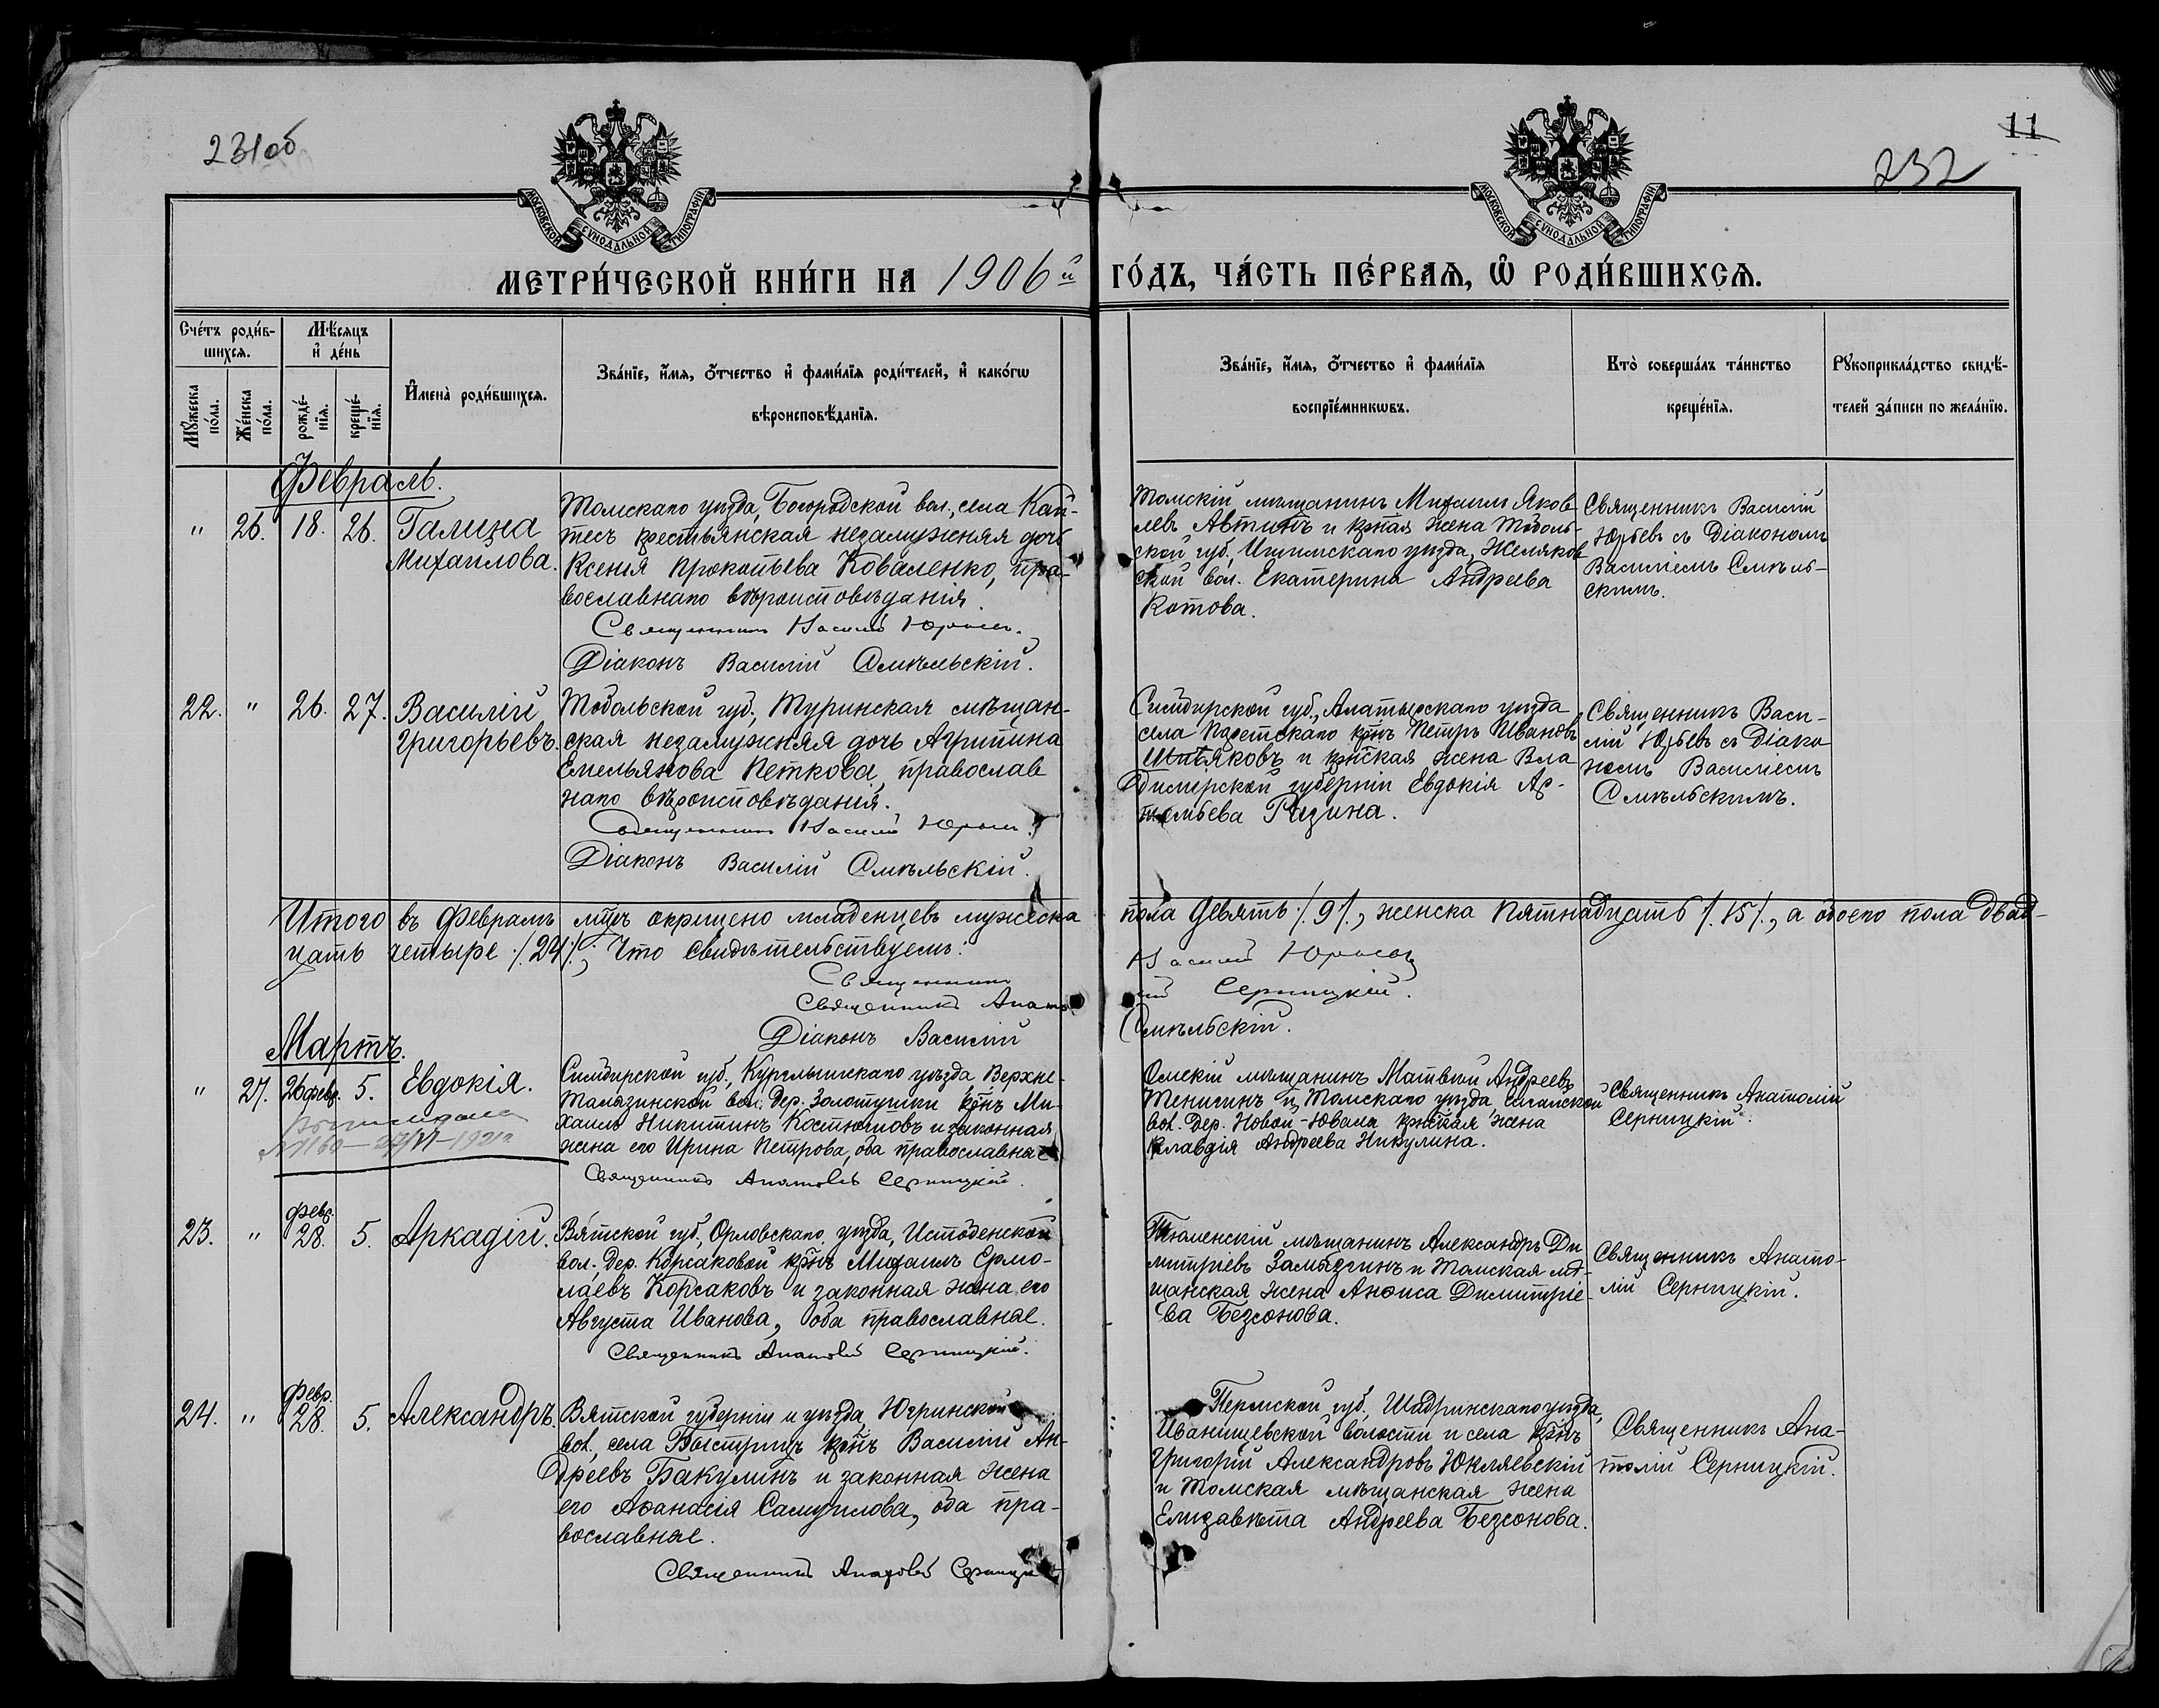 231об
11
232
МОСКОВСКОЙ СѴНОДАЛЬНОЙ ТИПОГРАФІИ
МОСКОВСКОЙ СѴНОДАЛЬНОЙ ТИПОГРАФІИ
МЕТРИ́ЧЕСКОЙ КНИ́ГИ НА 1906й ГО́ДЪ, ЧА́СТЬ ПЕ́РВАѦ, Ѽ РОДИ́ВШИХСѦ.
Сче́тъ роди́в-
шихсѧ.
Мѣ́сѧцъ
и҆ де́нь
Мꙋ́жеска
по́ла.
Же́нска
по́ла.
рожде́-
нїѧ.
креще́-
нїѧ.
И҆мена̀ роди́вшихсѧ.
Зва́нїе, и҆́мѧ, ѻ҆́тчество и҆ фами́лїѧ роди́телей, и҆ како́гѡ
вѣроисповѣ́данїѧ.
Зва́нїе, и҆́мѧ, ѻ҆́тчество и҆ фами́лїѧ
воспрїе́мникѡвъ.
Кто̀ соверша́лъ та́инство
креще́нїѧ.
Рꙋкоприкла́дство свидѣ́-
телей за́писи по жела́нїю.
Февраль.
" 26. 18. 26. Галина
Михаилова.
Томскаго уѣзда, Богородской вол., села Кай-
тесъ крестьянская незамужняя дочь
Ксенія Прокопьева Коваленко, пра-
вославнаго вѣроисповѣданія.
Священникъ Василій Юрьевъ.
Діаконъ Василій Смѣльскій.
Томскій мѣщанинъ Михаилъ Яков
левъ Автинъ и крⷭ҇тая жена Тоболь-
ской губ., Ишимскаго уѣзда, Жиляков
ской вол. Екатерина Андреева
Котова.
Священникъ Василій
Юрьевъ съ Діакономъ
Василіемъ Смѣль-
скимъ.
22. " 26. 27. Василій
Григорьевъ.
Тобольской губ., Туринская мѣщан-
ская незамужняя дочь Агрипина
Емельянова Петкова, православ
наго вѣроисповѣданія.
Священникъ Василій Юрьевъ
Діаконъ Василій Смѣльскій.
Симбирской губ., Алатырскаго уѣзда
села крⷭ҇нъ Петръ Ивановъ
и крⷭ҇нская жена Вла
димірской губерніи Евдокія Ар-
темьева
Священникъ Васи-
лій Юрьевъ съ Діако
номъ Василіемъ
Смѣльскимъ.
Итого въ Февралѣ мцѣ окрещено младенцевъ мужеска пола девять /.9/., женска пятнадцать /.15/., а обоего пола двад-
цать четыре /.24/.; Что свидѣтельствуемъ:
Священникъ Василій Юрьевъ
Священникъ Анатолій Серницкій.
Діаконъ Василій Смѣльскій.
Мартъ.
" 27. 26 февр. 5. Евдокія.
Симбирской губ., Курмышскаго уѣзда Верхне-
Талызинской вол. дер. Золотушки крⷭ҇нъ Ми-
хаилъ Никитинъ Костюковъ и законная
жена его Ирина Петрова, оба православные
Священникъ Анатолій Серницкій.
Омскій мѣщанинъ Матвѣй Андреевъ
Тенигинъ и Томскаго уѣзда
вол. дер. Новой-Ювалы крⷭ҇нская жена
Клавдія Андреева Никулина.
Священникъ Анатолій
Серницкій.
23. " Февр. 28. 5. Аркадій.
Вятской губ., Орловскаго уѣзда, Истобенской
вол. дер. Корсаковой крⷭ҇нъ Михаилъ Ермо-
лаевъ Корсаковъ и законная жена его
Августа Иванова, оба православные.
Священникъ Анатолій Серницкій.
Тюменскій мѣщанинъ Александръ Ди
митріевъ и Томская мѣ-
щанская жена Анѳиса Димитріе-
ва Безсонова.
Священникъ Анато-
лій Серницкій.
24. " Февр. 28. 5. Александръ.
Вятской губерніи и уѣзда, Югринской
вол. села Быстрицъ крⷭ҇нъ Василій Ан-
дреевъ Бакулинъ и законная жена
его Аѳанасія Самуилова, оба пра-
вославные.
Священникъ Анатолій Серницкій
Пермской губ., Шадринскаго уѣзда,
Иванищевской волости и села крⷭ҇нъ
Григорій Александровъ Юкляевскій
и Томская мѣщанская жена
Елизавѣта Андреева Безсонова.
Священникъ Ана-
толій Серницкій.